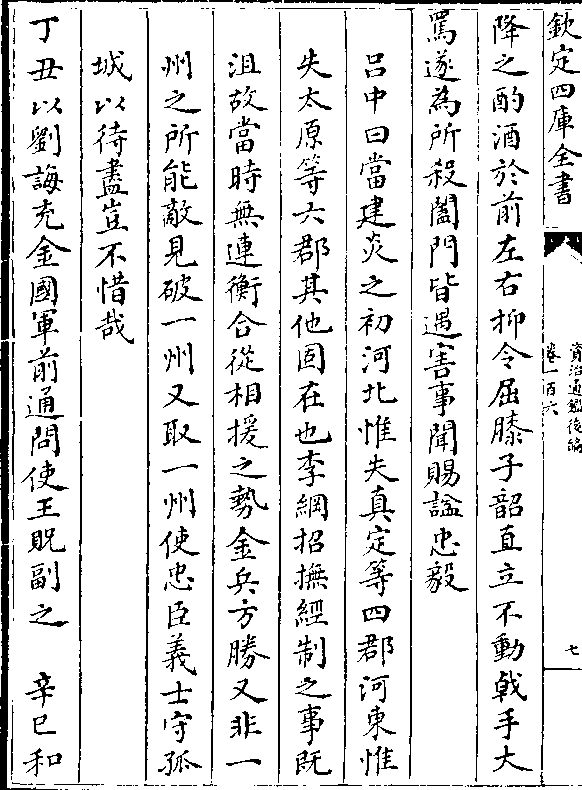 欽定四庫全書
資治通鑑後編
卷一百六
七
降之酌酒於前左右抑令屈膝子韶直立不動戟手大
罵遂為所殺闔門皆遇害事聞賜謚忠毅
吕中曰當建炎之初河北惟失真定等四郡河東惟
失太原等六郡其他固在也李綱招撫經制之事既
沮故當時無連衡合從相援之勢金兵方勝又非一
州之所能敵見破一州又取一州使忠臣義士守孤
城以待盡豈不惜哉
丁丑以劉誨充金國軍前通問使王貺副之 辛巳和